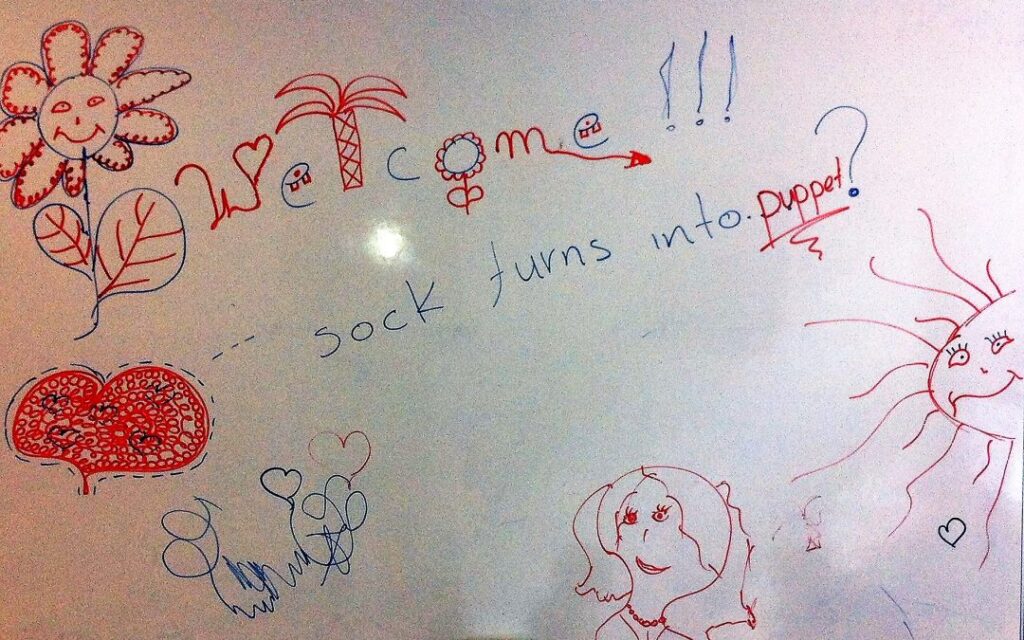 Welcome!!!
sock turns into. puppet?